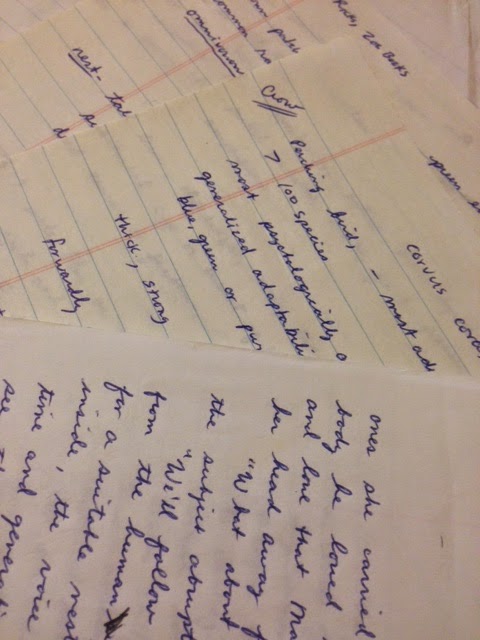 omnivorous
nest-
Ravens, Zoo Books
Crow
Perching birds,
> 100 species
most psychologically a
generalized adaptabili
blue, green or pur
thick, strong
forwardly
corvus
- most ad
green
ones she carried
body he loved
and love that
her head away
"What about
the subject abrupt
from
"We'll follow
the human
for a suitable nest
inside, the voice
time and generati
see